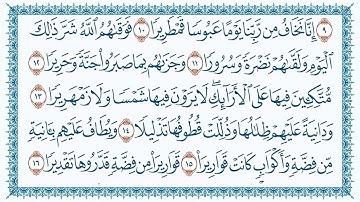 ٩ إِنَّا نَخَافُ مِن رَّبِّنَا يَوْمًا عَبُوسًا قَمْطَرِيرًا ١٠ فَوَقَىٰهُمُ ٱللَّهُ شَرَّ ذَٰلِكَ
ٱلْيَوْمِ وَلَقَّىٰهُمْ نَضْرَةً وَسُرُورًا ١١ وَجَزَىٰهُم بِمَا صَبَرُوا۟ جَنَّةً وَحَرِيرًا ١٢
مُّتَّكِـِٔينَ فِيهَا عَلَى ٱلْأَرَآئِكِ ۖ لَا يَرَوْنَ فِيهَا شَمْسًا وَلَا زَمْهَرِيرًا ١٣
وَدَانِيَةً عَلَيْهِمْ ظِلَٰلُهَا وَذُلِّلَتْ قُطُوفُهَا تَذْلِيلًا ١٤ وَيُطَافُ عَلَيْهِم بِـَٔانِيَةٍ
مِّن فِضَّةٍ وَأَكْوَابٍ كَانَتْ قَوَارِيرَا۠ ١٥ قَوَارِيرَا۟ مِن فِضَّةٍ قَدَّرُوهَا تَقْدِيرًا ١٦